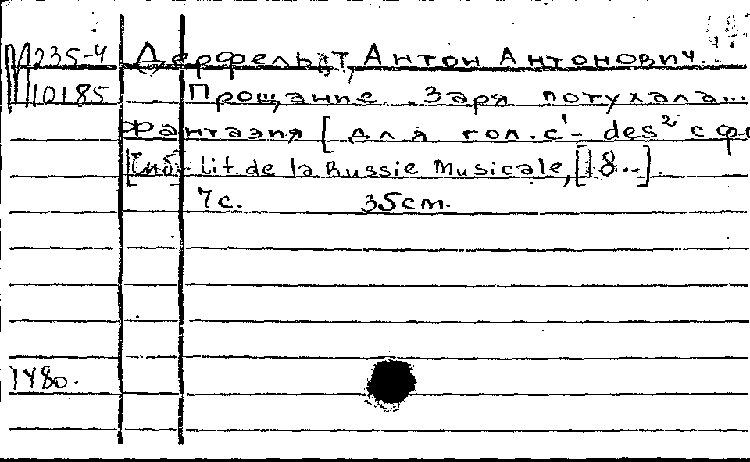 М 235-4 Дерфельдт, Антон Антонович.
10185 Прощание. Заря потухала...
Фантазия [для гол. c¹- des² с фо
[Спб] Lit de la Russie Musicale, [18..].
7 с. 35 cm.
1480.